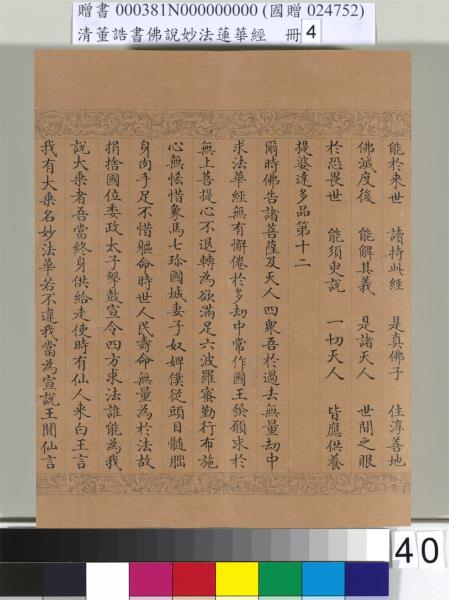 贈書 000381N000000000 (國贈 024752)
清董誥書佛說妙法蓮華經 冊 4
能於來世 讀持此經 是真佛子 住淳善地
佛滅度後 能解其義 是諸天人 世間之眼
於恐畏世 能須臾說 一切天人 皆應供養
提婆達多品第十二
爾時佛告諸菩薩及天人四眾吾於過去無量劫中
求法華經無有懈倦於多劫中常作國王發願求於
無上菩提心不退轉為欲滿足六波羅蜜勤行布施
心無悋惜象馬七珍國城妻子奴婢僕從頭目髓腦
身肉手足不惜軀命時世人民壽命無量為於法故
捐捨國位委政太子擊鼓宣令四方求法誰能為我
說大乘者吾當終身供給走使時有仙人來白王言
我有大乘名妙法華若不違我當為宣說王聞仙言
40